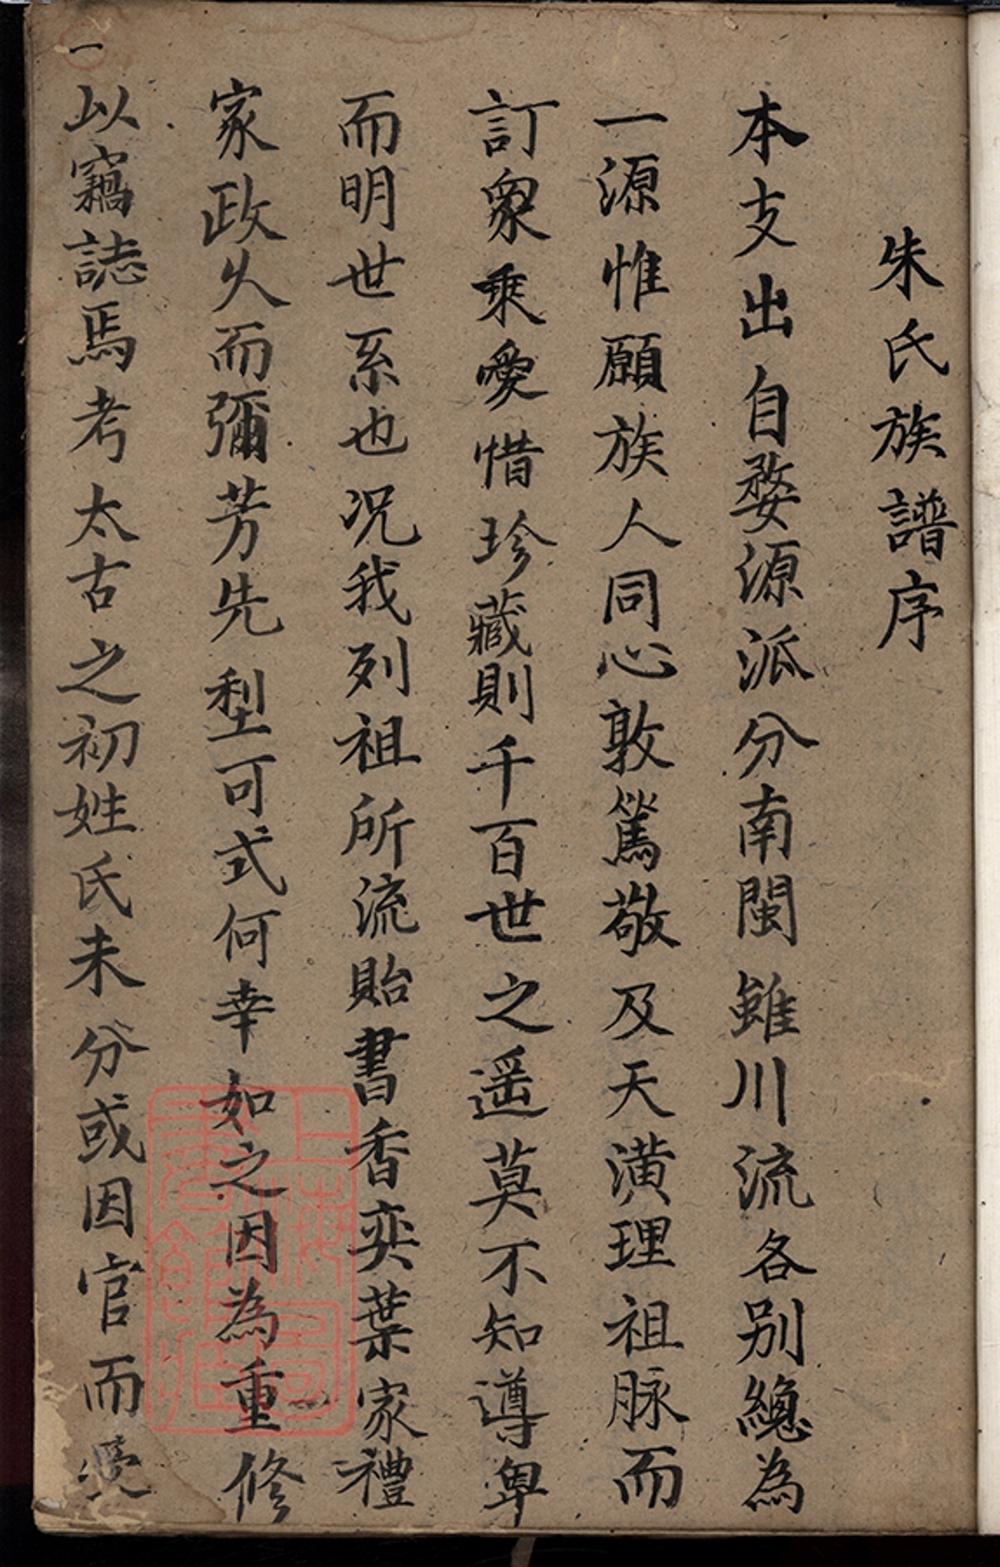 朱氏族譜序
本支出自婺源派分南閩雖川流各別總為
一源惟願族人同心敦篤敬及天潢理祖脉而
訂衆乘愛惜珍藏則千百世之遥莫不知導卑
而明世系也况我列祖所流貽書香奕葉家禮
家政久而彌芳先型可式何幸如之因為重修
以竊誌焉考太古之初姓氏未分或因官而受
一
上海圖書館藏